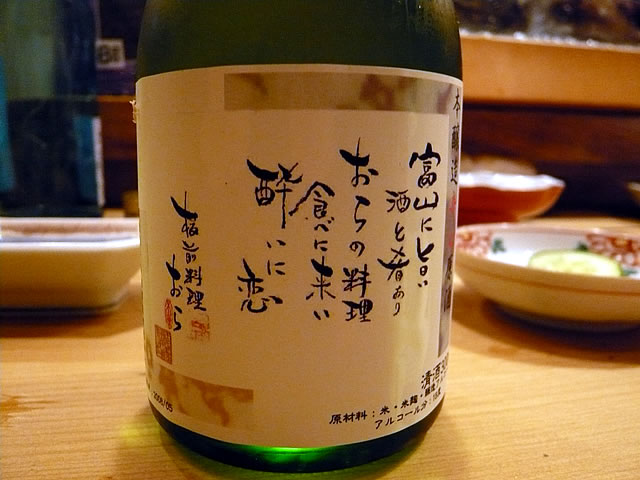 本醸造
富山に旨い
酒と肴あり
おらの料理
食べに来い
酔いに恋
板前料理
おら
清酒
原材料：米・米麹・醸造アル
アルコール分：
2005/05